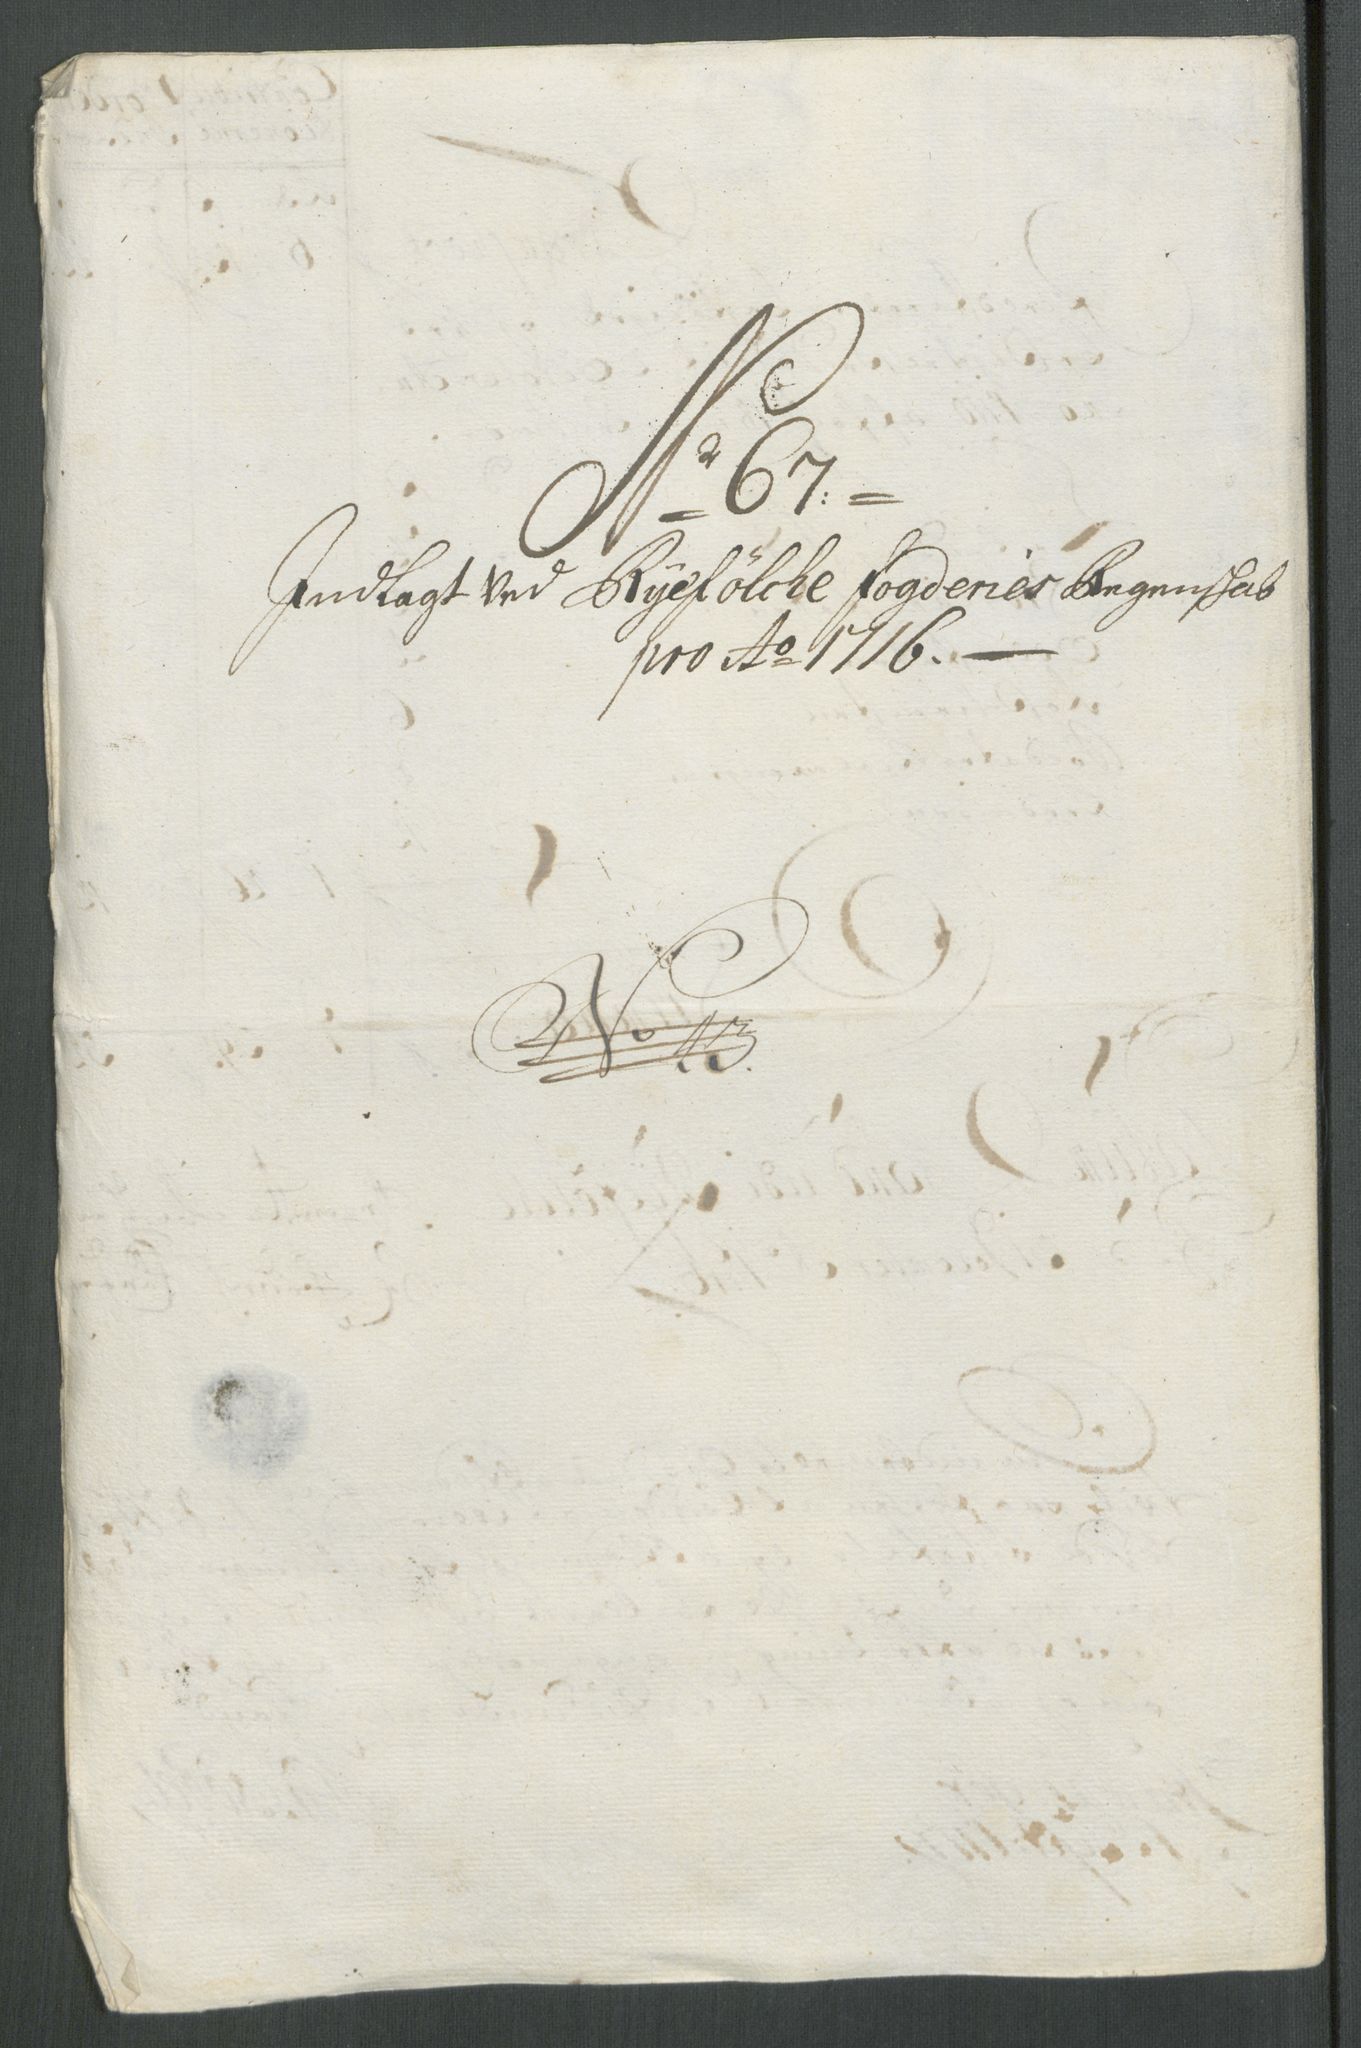 No 67.
Indlagt Ved Rÿefölche fogderies Regenskab
pro Ao 1716.
No 13.